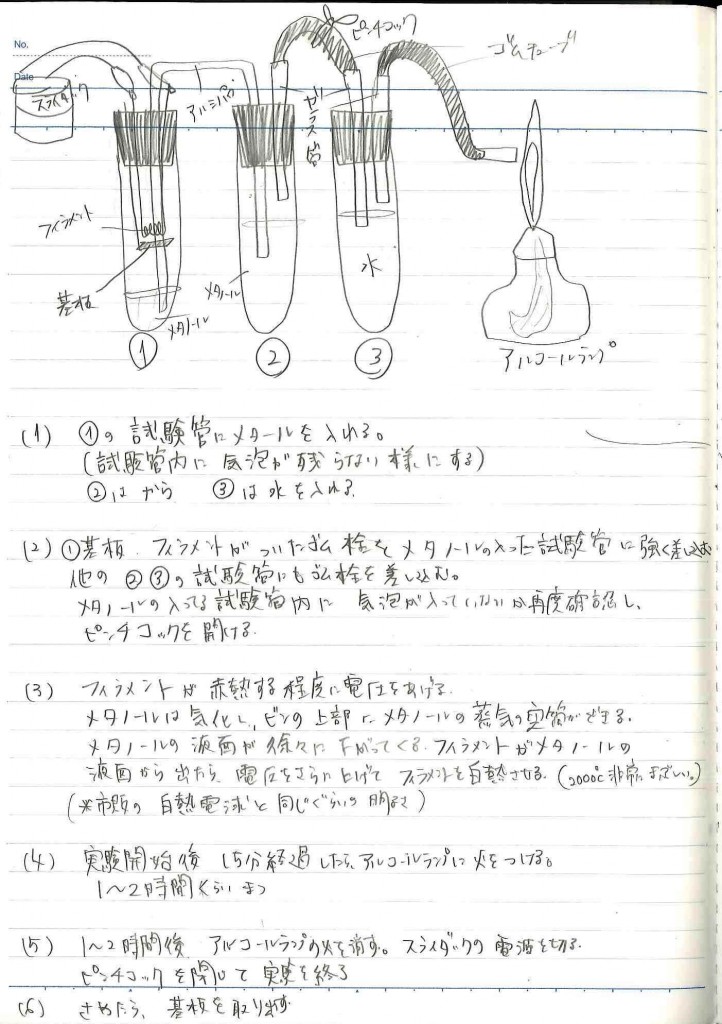 No.
Date
スライダック
ピンチコック
ゴムチューブ
アルミパイプ
ガラス管
フィラメント
基板
メタノール
メタノール
水
① ② ③
アルコールランプ
(1) ①の試験管にメタールを入れる。
(試験管内に気泡が残らない様にする)
②はから ③は水を入れる.
(2) ①基板.フィラメントがついたゴム栓をメタノールの入った試験管に強く差し込む
他の②③の試験管にもゴム栓を差し込む。
メタノールの入ってる試験管内に 気泡が入っていないか再度確認し、
ピンチコックを開ける.
(3) フィラメントが赤熱する程度に電圧をあげる.
メタノールは気化し、ビンの上部にメタノールの蒸気の空間ができる.
メタノールの液面が徐々に下がってくる.フィラメントがメタノールの
液面から出たら、電圧をさらに上げてフィラメントを白熱させる.(2000℃非常にまぶしい。)
(※市販の白熱電球と同じぐらいの明るさ)
(4) 実験開始後 15分経過したら、アルコールランプに火をつける。
1〜2時間くらいまつ
(5) 1〜2時間後 アルコールランプの火を消す。スライダックの電源を切る.
ピンチコックを閉じて実験を終了
(6) さめたら、基板を取り出す